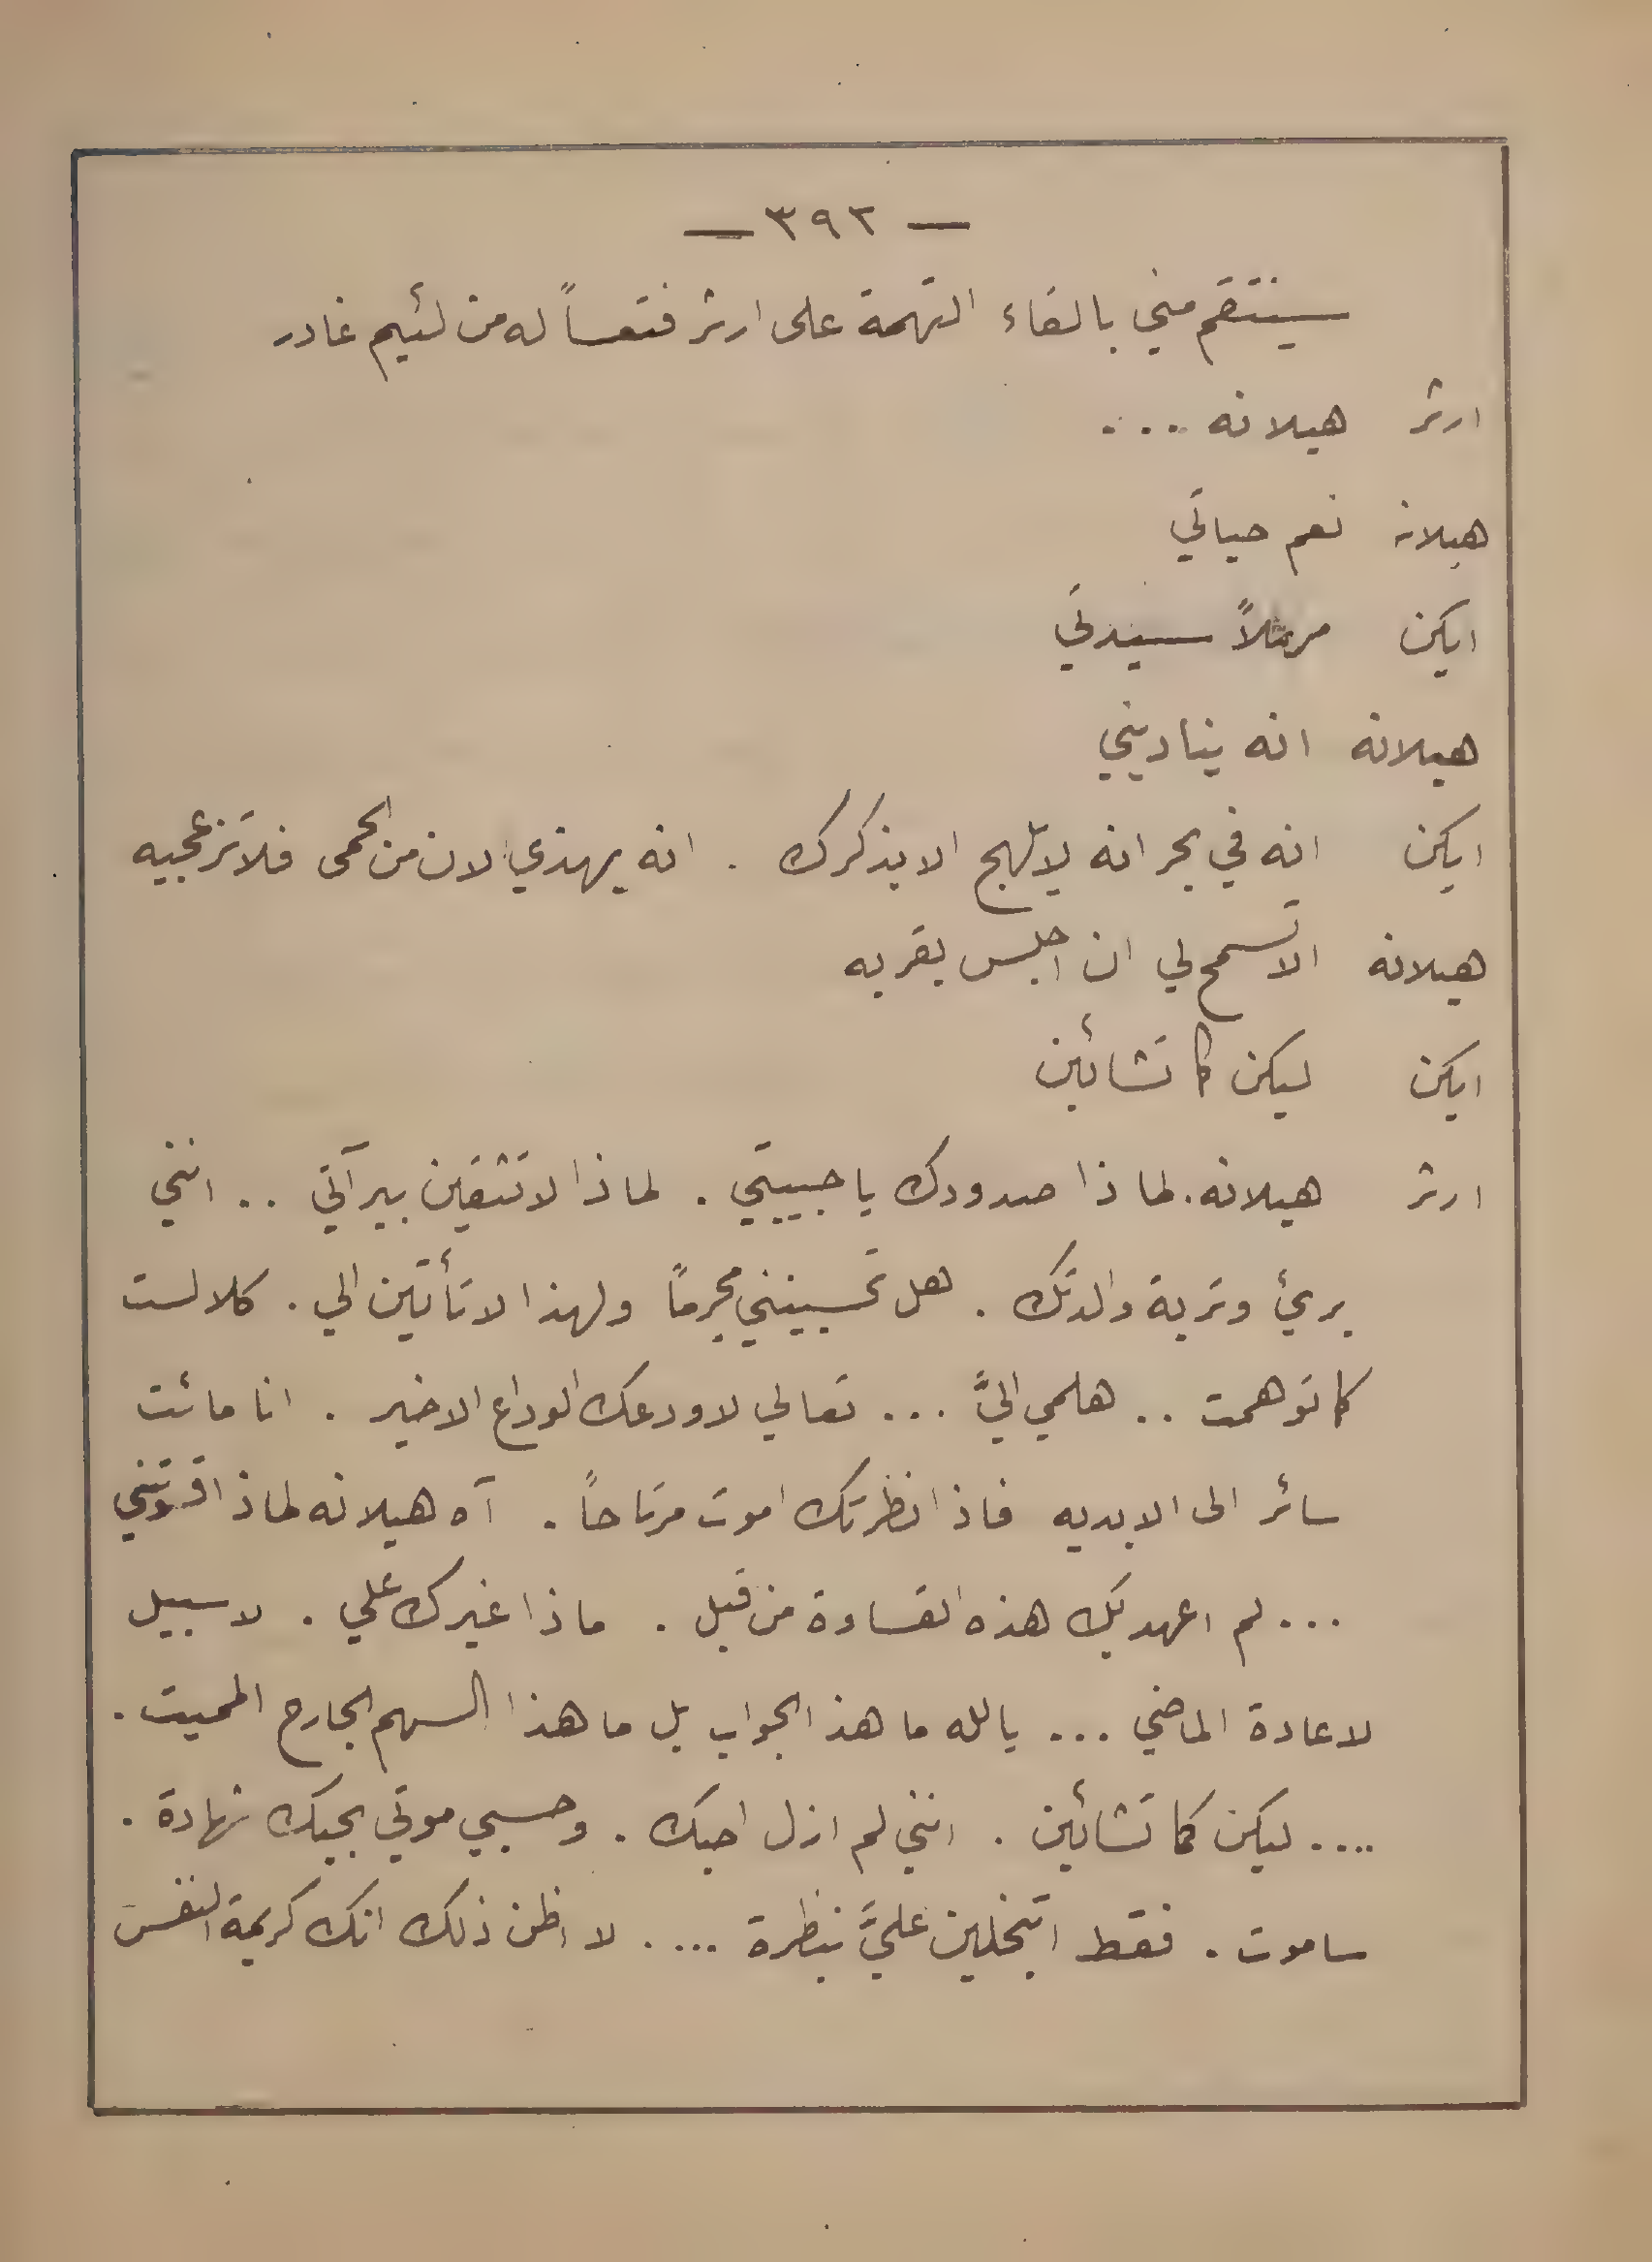 — ٣٩٢ —
سينتقم مني بالقاء التهمة على ارثر فتعساً له من لئيم غادر
ارثر هيلانه ....
هيلانه نعم حياتي
ايكن مهلاً سيدتي
هيلانه انه يناديني
ايكن انه في بحرانه لا يلهج الا بذكرك . انه يهذي الان من الحمى فلا تزعجيه
هيلانه الا تسمح لي ان اجلس بقربه
ايكن ليكن كما تشائين
ارثر هيلانه . لماذا صدودك يا حبيبتي . لماذا لا تثقين ببرآتي .. انني
بريئ وتربة والدتك . هل تحسبينني مجرماً ولهذا لا تأتين الي . كلا لست
كما توهمت .. هلمي اليَّ ... تعالي لاودعك الوداع الاخير . انا مائت
سائر الى الابديه فاذا نظرتك اموت مرتاحاً . آه هيلانه لماذا
... لم اعهد بك هذه القساوة من قبل . ماذا غيرك علي . لا سبيل
لاعادة الماضي ... يالله ما هذا الجواب بل ما هذا السهم الجارح المميت .
.... ليكن كما تشائين . انني لم ازل احبك . وحسبي موتي بحبك شهادة .
ساموت . فقط اتبخلين عليَّ بنظرة .... لا اظن ذلك انك كريمة النفس